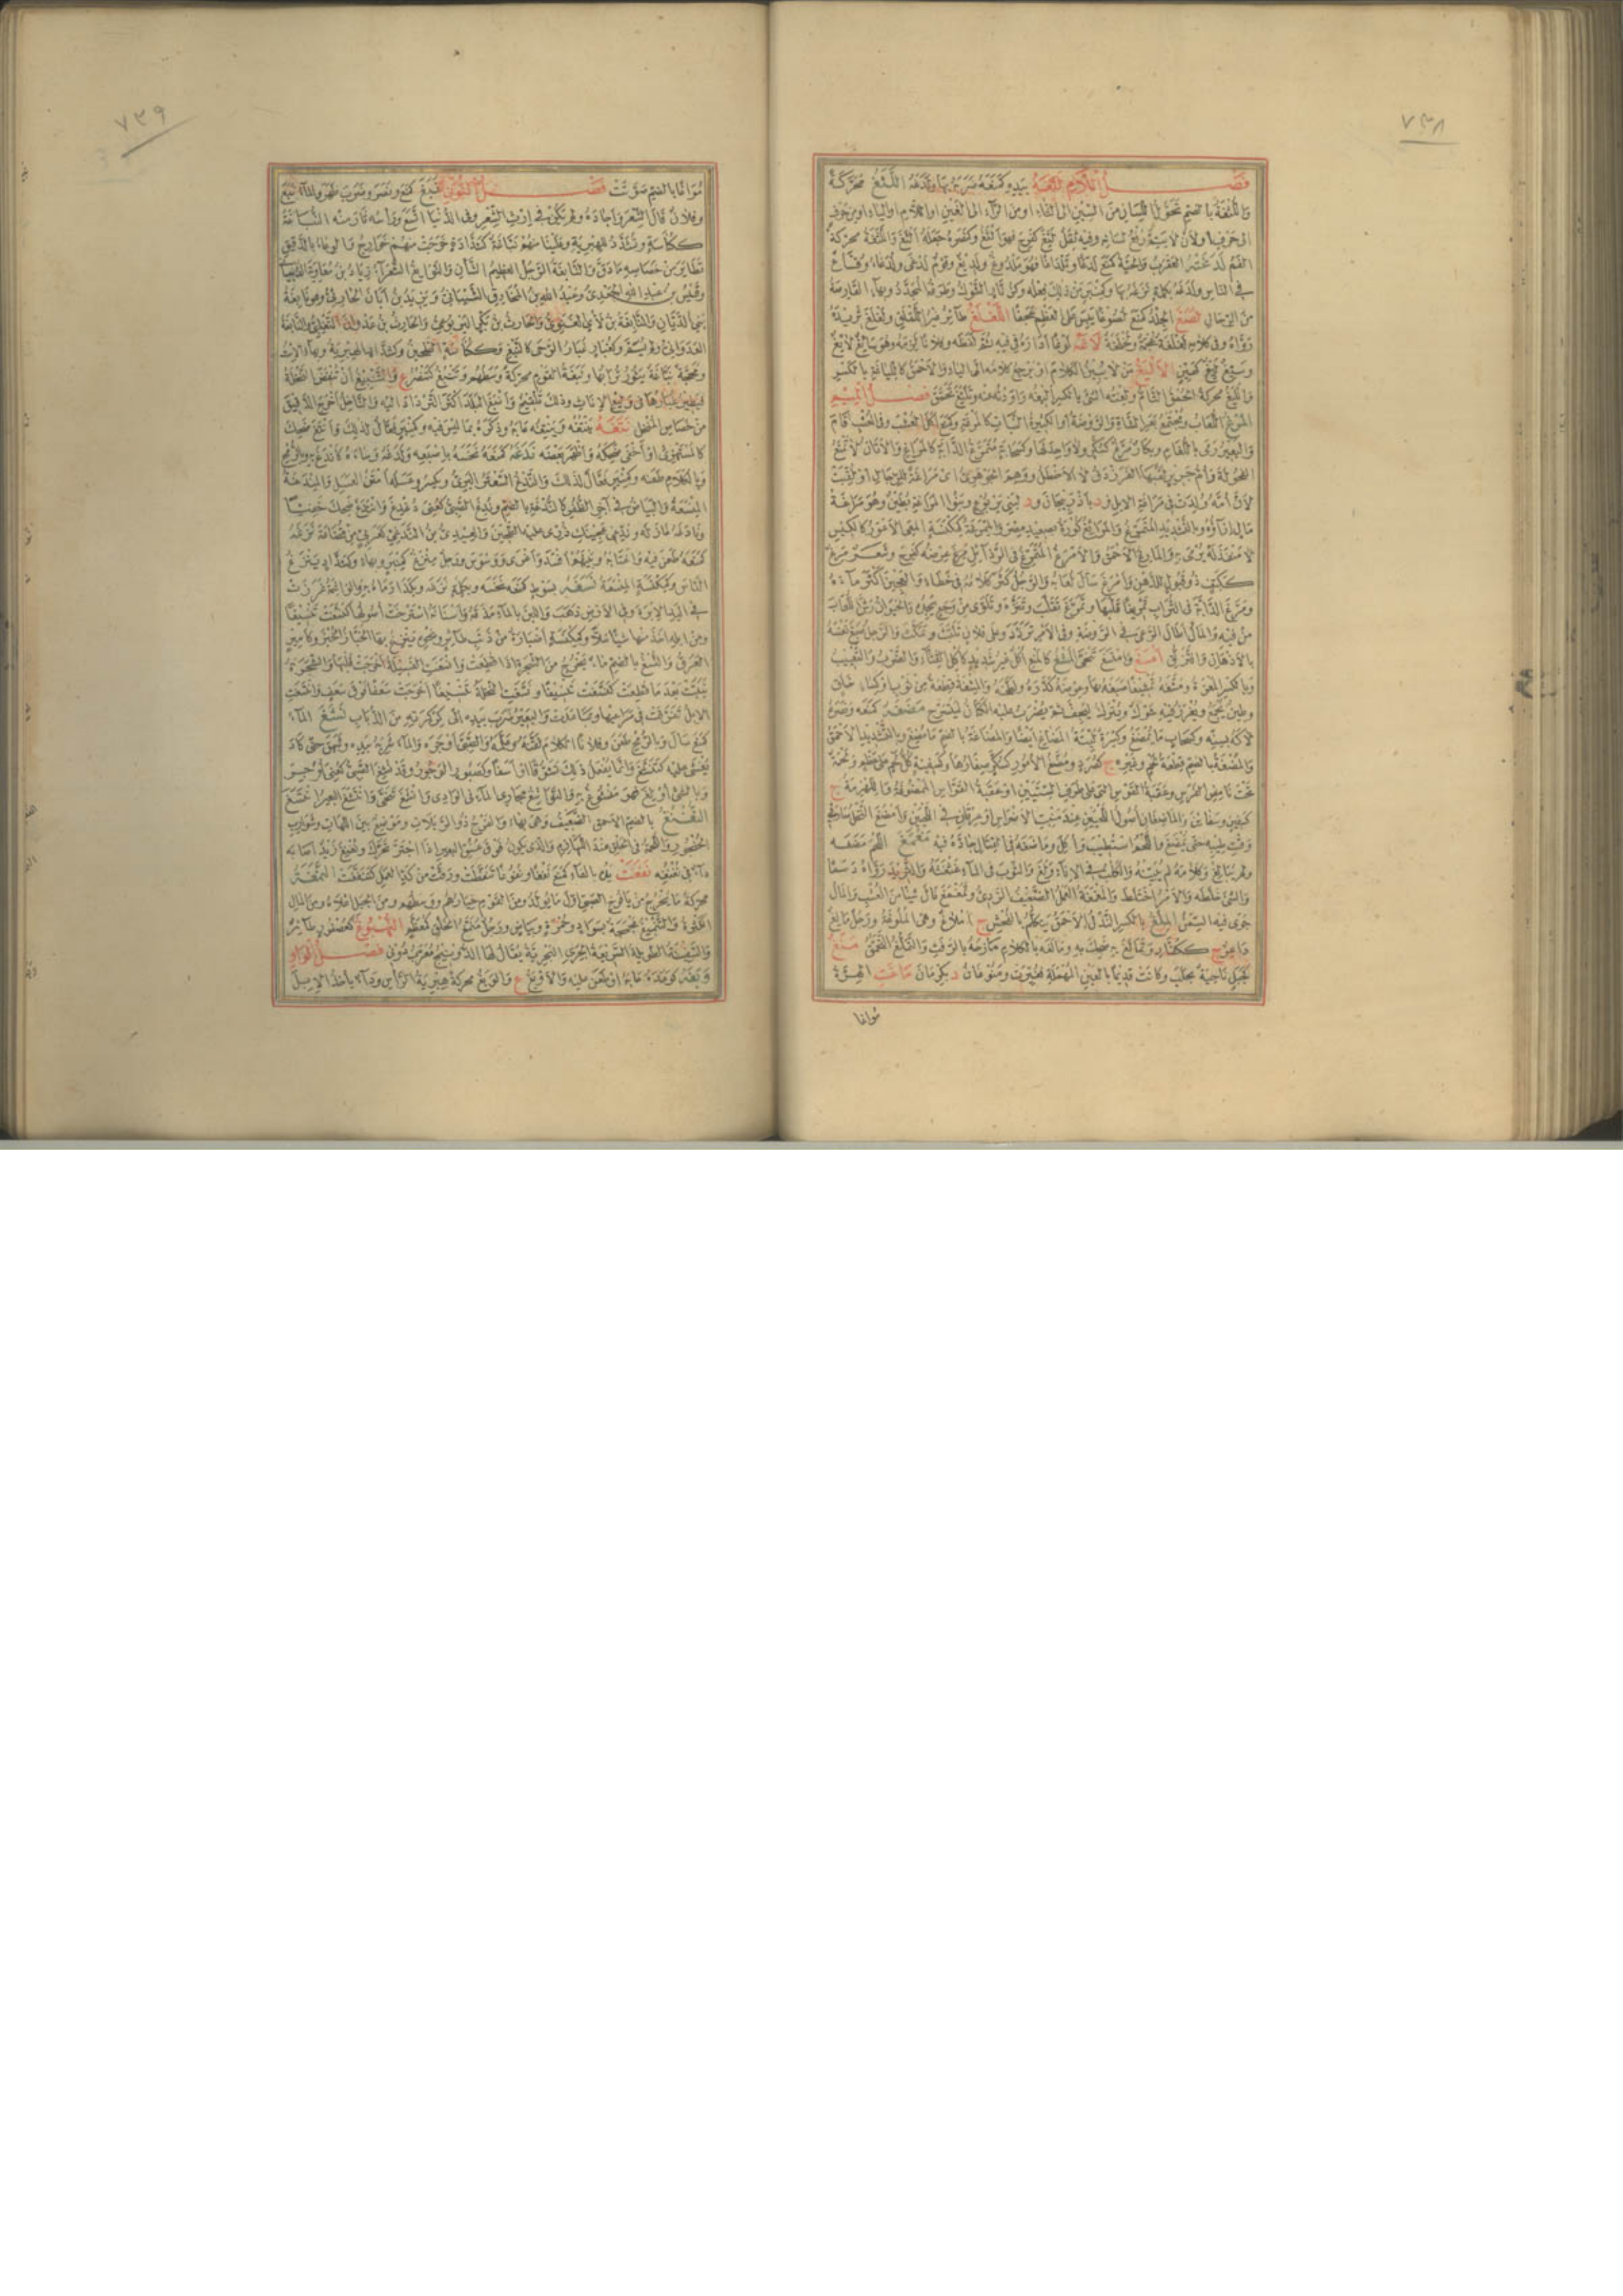 ٧٣٨
فصل اللام لتغه بيده كمنعه ضربه بها ولدغه اللثغ محركة
واللثغة بالضم تحول اللسان من السين الى الثاء او من الراء الى الغين او اللام او الياء او من حرف
الى حرف او ان لا يتم رفع لسانه وفيه ثقل لثغ كفرح فهو الثغ وكنصره جعله الثغ واللثغة محركة
الفم لدغته العقرب والحية كمنع لدغا وتلداغا فهو ملدوغ ولديغ وقوم لدغى ولدغاء
في الناس ولدغه بكلمة نزغه بها
من الرجال لصغ الجلد كمنع لصوغا يبس على العظم عجفا اللغلغ طائر غير اللقلق ولغلغ ثريده
رواه وفي كلامه لغلغة عجمة لاغه لوغا اداره في فيه ثم لفظه وفلانا لزمه وهو سائغ لائغ
وسيغ ليغ كهين الاليغ من لا يبين الكلام او يرجع كلامه الى الياء والاحمق كاللياغة بالكسر
والليغ محركة الحمق التام ولغته الشئ بالكسر اليغه راودته عنه وتليغ تحمق فصل الميم
المرغ اللعاب ومجتمع بعر الشاة والروضة او الكثيرة النبات كالمرغة وكمنع اكل العشب وفي العشب اقام
والبعير رمى باللغام وبكار مرغ كسكر ولا واحد لها وكسحابة متمرغ الدابة كالمراغ والاتان لا تمتنع
الفحولة وام جرير لقبها الفرزدق لا الاخطل ووهم الجوهري اي مراغة للرجال او لقبت
لان امه ولدت في مراغة الابل و د باذربيجان و د لبني يربوع وبنو المراغة بطين وهو مراغة
مال ازاؤه وبالتشديد المتمرغ والمراغ كورة بصعيد مصر والممرغة كمكنسة المعى الاعور كالكيس
لا منفذ له يرمى به والمارغ الاحمق والامرغ المتمرغ في الرذائل مرغ عرضه كفرح وشعر مرغ
ككتف ذو قبول للدهن وامرغ سال لعابه والرجل كثر كلامه في خطاء والعجين اكثر ماءه
ومرغ الدابة في التراب تمريغا قلبها وتمرغ تقلب وتنزه وتلوى من وجع يجده والحيوان رش اللعاب
من فيه والمال اطال الرعى في الروضة وفي الامر تردد وعلى فلان تلبث وتمكث والرجل صبغ نفسه
بالادهان والتزلق امسغ وامتسغ تنحى المشغ كالمنع اكل غير شديد كاكل القثاء والضرب والتعييب
وبالكسر المغرة ومشغه تمشيغا صبغه بها وعرضه كدره ولطخه والمشغة قطعة من ثوب او كساء خلق
وطين يجمع ويغرز فيه شوك ويترك ليجف ثم يضرب عليه الكتان ليتسرح مضغه كمنعه ونصره
لاكه بسنه وكسحاب ما يمضغ وكسرة لينة المضاغ ايضا والمضاغة بالضم ما مضغ وبالتشديد الاحمق
والمضغة بالضم قطعة لحم وغيره ج كصرد ومضغ الامور كسكر صغارها وكسفينة كل لحم على عظم ولحمة
تحت ناهض الفرس وعقبة القوس التي على طرف السيتين او عقبة القواس الممضوغة واللهزمة ج
كسفين وسفائن والماضغان اصول اللحيين عند منبت الاضراس او عرقان في اللحيين وامضغ النخل صار في
وقت طيبه حتى يمضغ واللحم استطيب واكل وماضغه في القتال جاده فيه مغمغ اللحم مضغه
ولم يبالغ وكلامه لم يبينه والكلب في الاناء ولغ والثوب في الماء غثغثه والثريد رواه دسما
والشئ خلطه والامر اختلط والمغمغة العمل الضعيف الردئ وتمغمغ نال شيئا من العشب والمال
جرى فيه السمن الملغ بالكسر النذل الاحمق يتكلم بالفحش ج املاغ وهي الملوغة ورجل مالغ
داعر ج ككفار وتمالغ به ضحك به ومالغه بالكلام مازحه بالرفث والتملغ التحمق منغ
كجبل ناحية بحلب وكانت قديما بالعين المهملة فغيرت ومنوغان د بكرمان ماغت الهرة
مواغا
٧٣٩
مواغا بالضم صوتت فصل النون نبغ كمنع ونصر وضرب ظهر والماء نبع
وفلان قال الشعر واجاده ولم يكن في ارث الشعر وفي الدنيا اتسع وراسه ثار منه النباغة
ككناسة وتشدد للهبرية وعلينا منهم نباغة كشدادة خرجت منهم خوارج والوعاء بالدقيق
تطاير من خصاصه ما دق والنابغة الرجل العظيم الشان والنوابغ الشعراء زياد بن معاوية الذبياني
وقيس بن عبد الله الجعدي وعبد الله بن المخارق الشيباني ويزيد بن ابان الحارثي وهو نابغة
بني الديان والنابغة بن لاي الغنوي والحارث بن بكر اليربوعي والحارث بن عدوان التغلبي والنابغة
العدواني ولم يسم وكغبار غبار الرحى كالنبغ وككناسة الطحين وكشداد الهبرية وبهاء الاست
ومحجة نباغة يثور ترابها ونبغة القوم محركة وسطهم وتنبغ كتنصر ع والتنبيغ ان تنفض النخلة
فيطير غبارها في وليع الاناث وذلك تلقيح وانبغ البلد اكثر الترداد اليه والناخل اخرج الدقيق
من خصاص المنخل نتغه ينتغه وينتغه عابه وذكره بما ليس فيه وكمنبر فعال لذلك وانتغ ضحك
كالمستهزئ او اخفى ضحكه واظهر بعضه ندغه كمنعه نخسه باصبعه ولدغه وساءه كاندغ به وبالرمح
وبالكلام طعنه وكمنبر فعال لذلك والندغ السعتر البري ويكسر وعسله امتن العسل والمندغة
المنسغة والبياض في اخر الظفر كالندغة بالضم وندغ الصبى كعنى دغدغ وانتدغ ضحك خفيا
ونادغه غازله نزغه
كمنعه طعن فيه واغتابه وبينهم افسد واغرى ووسوس ورجل منزغ كمنبر
الناس وكمكنسة المنسغة نسغه بسوط كمنعه نخسه وبكلمة نزغه وبكذا رماه به والواشمة غرزت
في اليد الابرة وفي الارض ذهب واللبن بالماء مذقه واسنانه استرخت اصولها كنسغت تنسيغا
وكمكنسة اضبارة من ذنب طائر ونحوه ينزغ بها الخباز الخبز وكامير
العرق والنسغ بالضم ماء يخرج من الشجرة اذا قطعت وانسغت الفسيلة اخرجت قلبها والشجرة
نبتت بعد ما قطعت كنسغت تنسيغا ونسغت النخلة تنسيغا اخرجت سعفا فوق سعف وانتسغت
الابل تفرقت في مراعيها وتباعدت والبعير ضرب بيده الى كركرته من الذباب نشغ الماء
كمنع سال وبالرمح طعن وفلانا الكلام لقنه وعلمه والصبى اوجره والماء شربه بيده وشهق حتى كاد
يغشى عليه كتنشغ وانما يفعل ذلك تشوقا او اسفا وكصبور الوجور وقد نشغ الصبى كعنى اوجر
وبالشئ اولع فهو منشوغ به والنواشغ مجاري الماء في الوادي وانشغ تنحى وانتشغ البعير انتسغ
النغنغ بالضم الاحمق الضعيف وهي بهاء والفرج ذو الربلات وموضع بين اللهاة وشوارب
الحنجور واللحمة في الحلق عند اللهازم والذي يكون فوق عنق البعير اذا اجتر تحرك ونغنغ زيد اصابه
داء في نغنغه نفغت يده بالفاء كمنع نفغا ونفوغا تنفطت ورقت من كد العمل كتنفغت النمغة
محركة ما يتحرك من يافوخ الصبى اول ما يولد ومن القوم خيارهم ووسطهم ومن الجبل اعلاه ومن المال
الكثرة والتنميغ مجمجة بسواد وحمرة وبياض ورجل منمغ الخلق كمعظم النهبوغ كعصفور طائر
والسفينة الطويلة السريعة الجري البحرية يقال لها الدونيج معرب دوني فصل الواو
وبغه كوعده عابه او طعن عليه والاوبغ ع والوبغ محركة هبرية الراس وداء ياخذ الابل